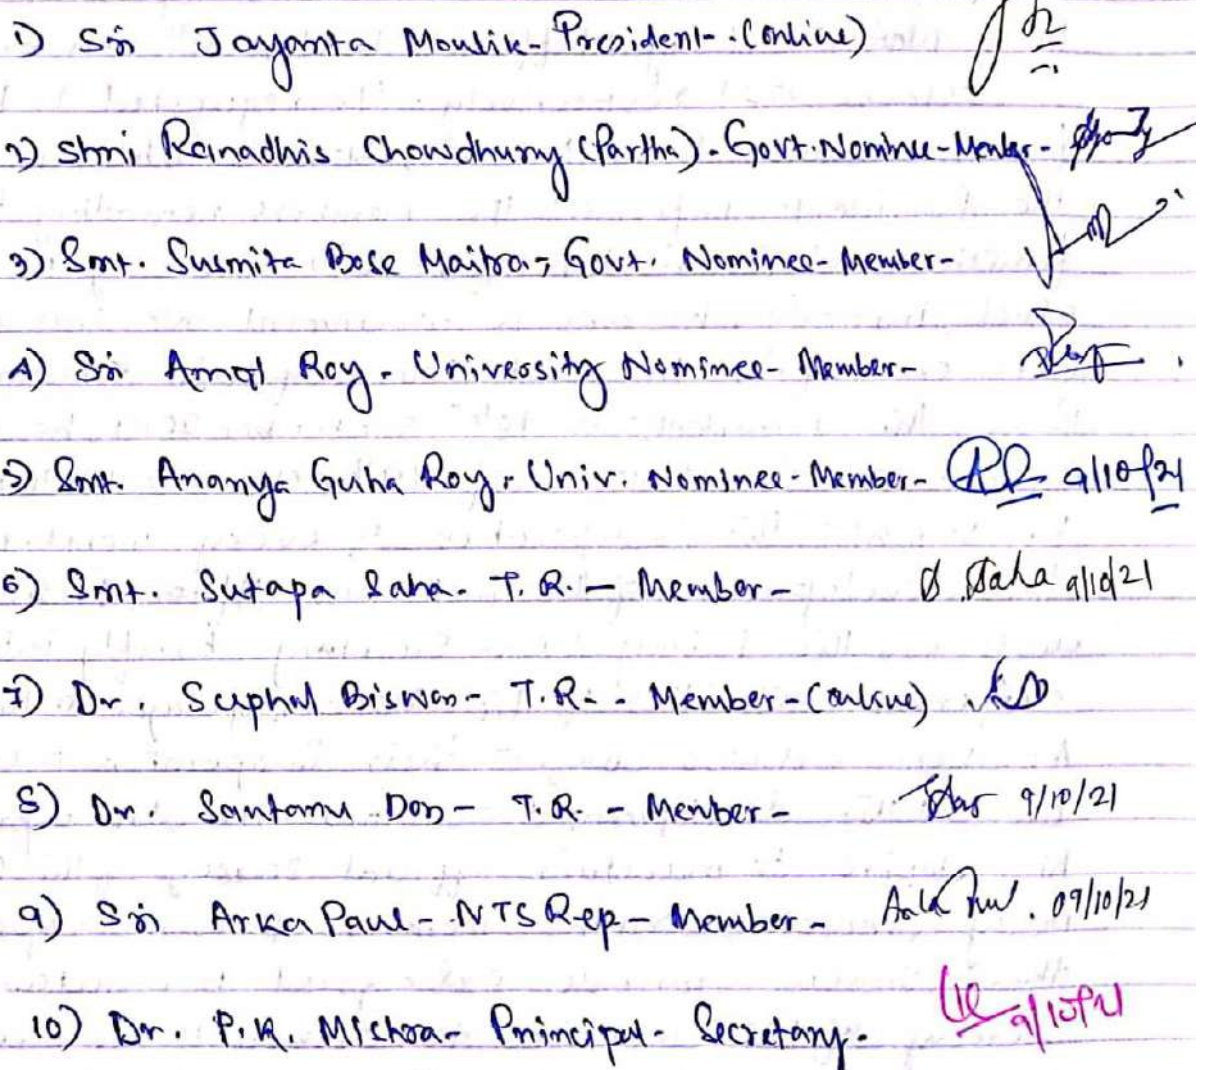 1) Sri Jayanta Moulik - President - (online)
2) Shri Ranadhis Chowdhury (Partha) - Govt. Nominee - Member -
3) Smt. Susmita Bose Maitra - Govt. Nominee - Member -
4) Sri Amal Roy - University Nominee - Member -
5) Smt. Ananya Guha Roy - Univ. Nominee - Member - 9/10/21
6) Smt. Sutapa Saha - T.R. - Member - S. Saha 9/10/21
7) Dr. Suphal Biswas - T.R. - Member - (online)
8) Dr. Santanu Das - T.R. - Member - 9/10/21
9) Sri Arka Paul - NTS Rep - Member - Arka Paul. 09/10/21
10) Dr. P.K. Mishra - Principal - Secretary. 9/10/21